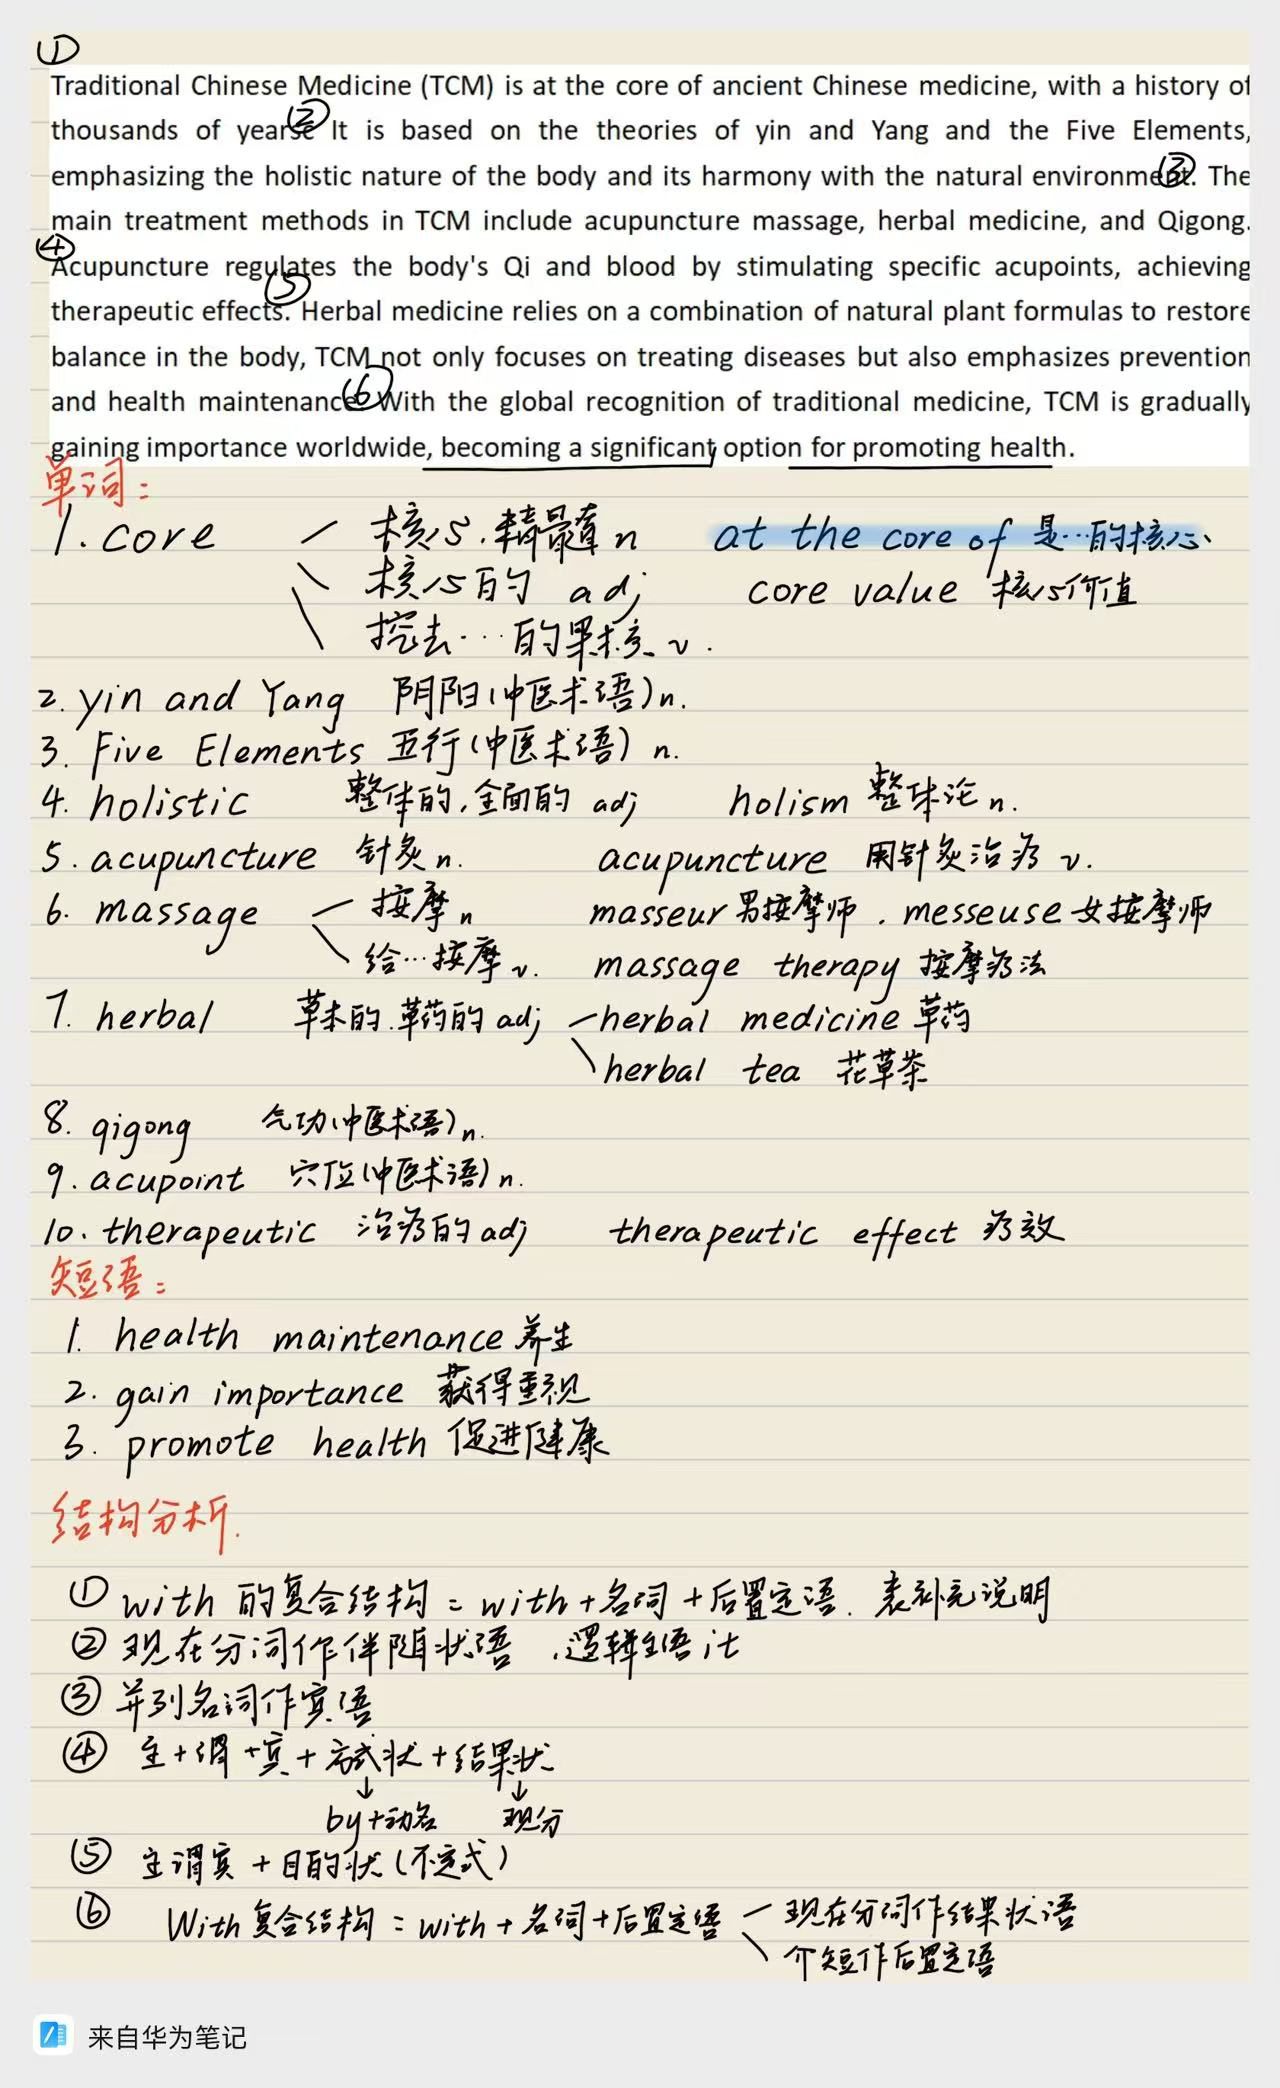 ①
Traditional Chinese Medicine (TCM) is at the core of ancient Chinese medicine, with a history of
thousands of years ② It is based on the theories of yin and Yang and the Five Elements,
emphasizing the holistic nature of the body and its harmony with the natural environment. ③ The
main treatment methods in TCM include acupuncture massage, herbal medicine, and Qigong.
④ Acupuncture regulates the body's Qi and blood by stimulating specific acupoints, achieving
therapeutic effects. ⑤ Herbal medicine relies on a combination of natural plant formulas to restore
balance in the body, TCM not only focuses on treating diseases but also emphasizes prevention
and health maintenance ⑥ With the global recognition of traditional medicine, TCM is gradually
gaining importance worldwide, becoming a significant option for promoting health.
单词:
1. core 核心.精髓 n at the core of 是…的核心
核心的 adj core value 核心价值
挖去…的果核 v.
2. yin and Yang 阴阳(中医术语)n.
3. Five Elements 五行(中医术语) n.
4. holistic 整体的,全面的 adj holism 整体论 n.
5. acupuncture 针灸 n. acupuncture 用针灸治疗 v.
6. massage 按摩 n masseur 男按摩师. messeuse 女按摩师
给…按摩 v. massage therapy 按摩疗法
7. herbal 草本的.草药的 adj herbal medicine 草药
herbal tea 花草茶
8. qigong 气功(中医术语)n.
9. acupoint 穴位(中医术语)n.
10. therapeutic 治疗的 adj therapeutic effect 疗效
短语:
1. health maintenance 养生
2. gain importance 获得重视
3. promote health 促进健康
结构分析.
① with 的复合结构 = with+名词+后置定语. 表补充说明
② 现在分词作伴随状语 ,逻辑主语 it
③ 并列名词作宾语
④ 主+谓+宾+方式状+结果状
↓ ↓
by+动名 现分
⑤ 主谓宾+目的状(不定式)
⑥ With 复合结构 = with+名词+后置定语 现在分词作结果状语
介短作后置定语
来自华为笔记